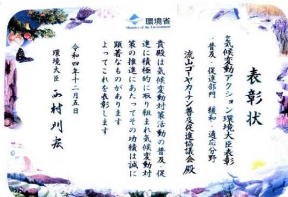 環境省
Ministry of the Environment
表彰状
気候変動アクション環境大臣表彰
普及・促進部門 緩和・適応分野
流山ゴーヤカーテン普及促進協議会殿
貴殿は気候変動対策活動の普及・促
進に積極的に取り組まれ気候変動対
策の推進にあたってその功績は誠に
顕著なものがあります
よってこれを表彰します
令和四年十二月五日
環境大臣 西村明宏